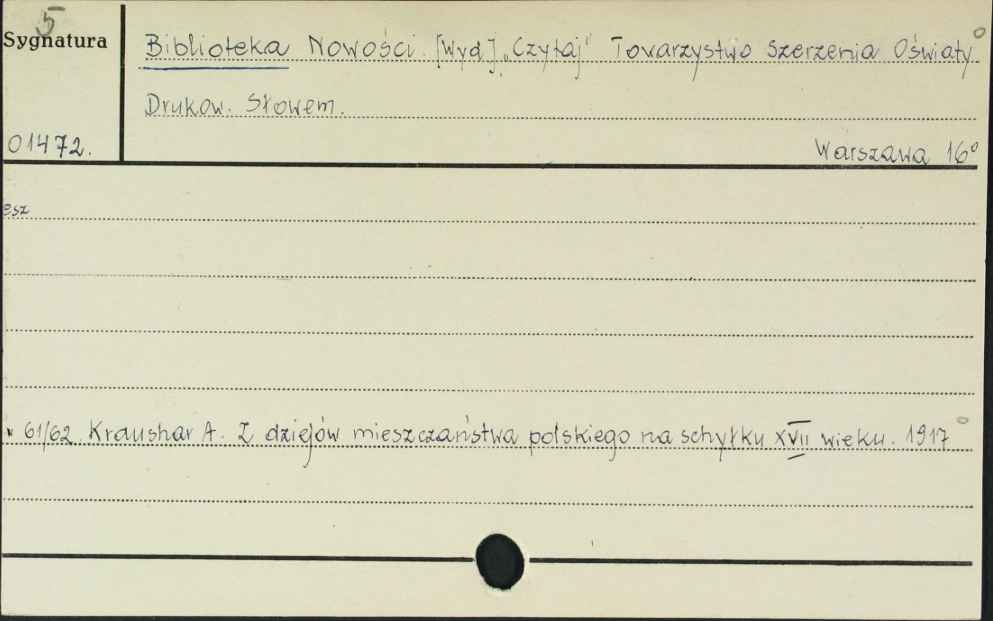 5
Sygnatura
Biblioteka Nowości. [Wyd.] „Czytaj" Towarzystwo Szerzenia Oświaty
Drukow. Słowem.
01472.
Warszawa 16°
esz
61/62. Kraushar A. Z dziejów mieszczaństwa polskiego na schyłku XVII wieku. 1917